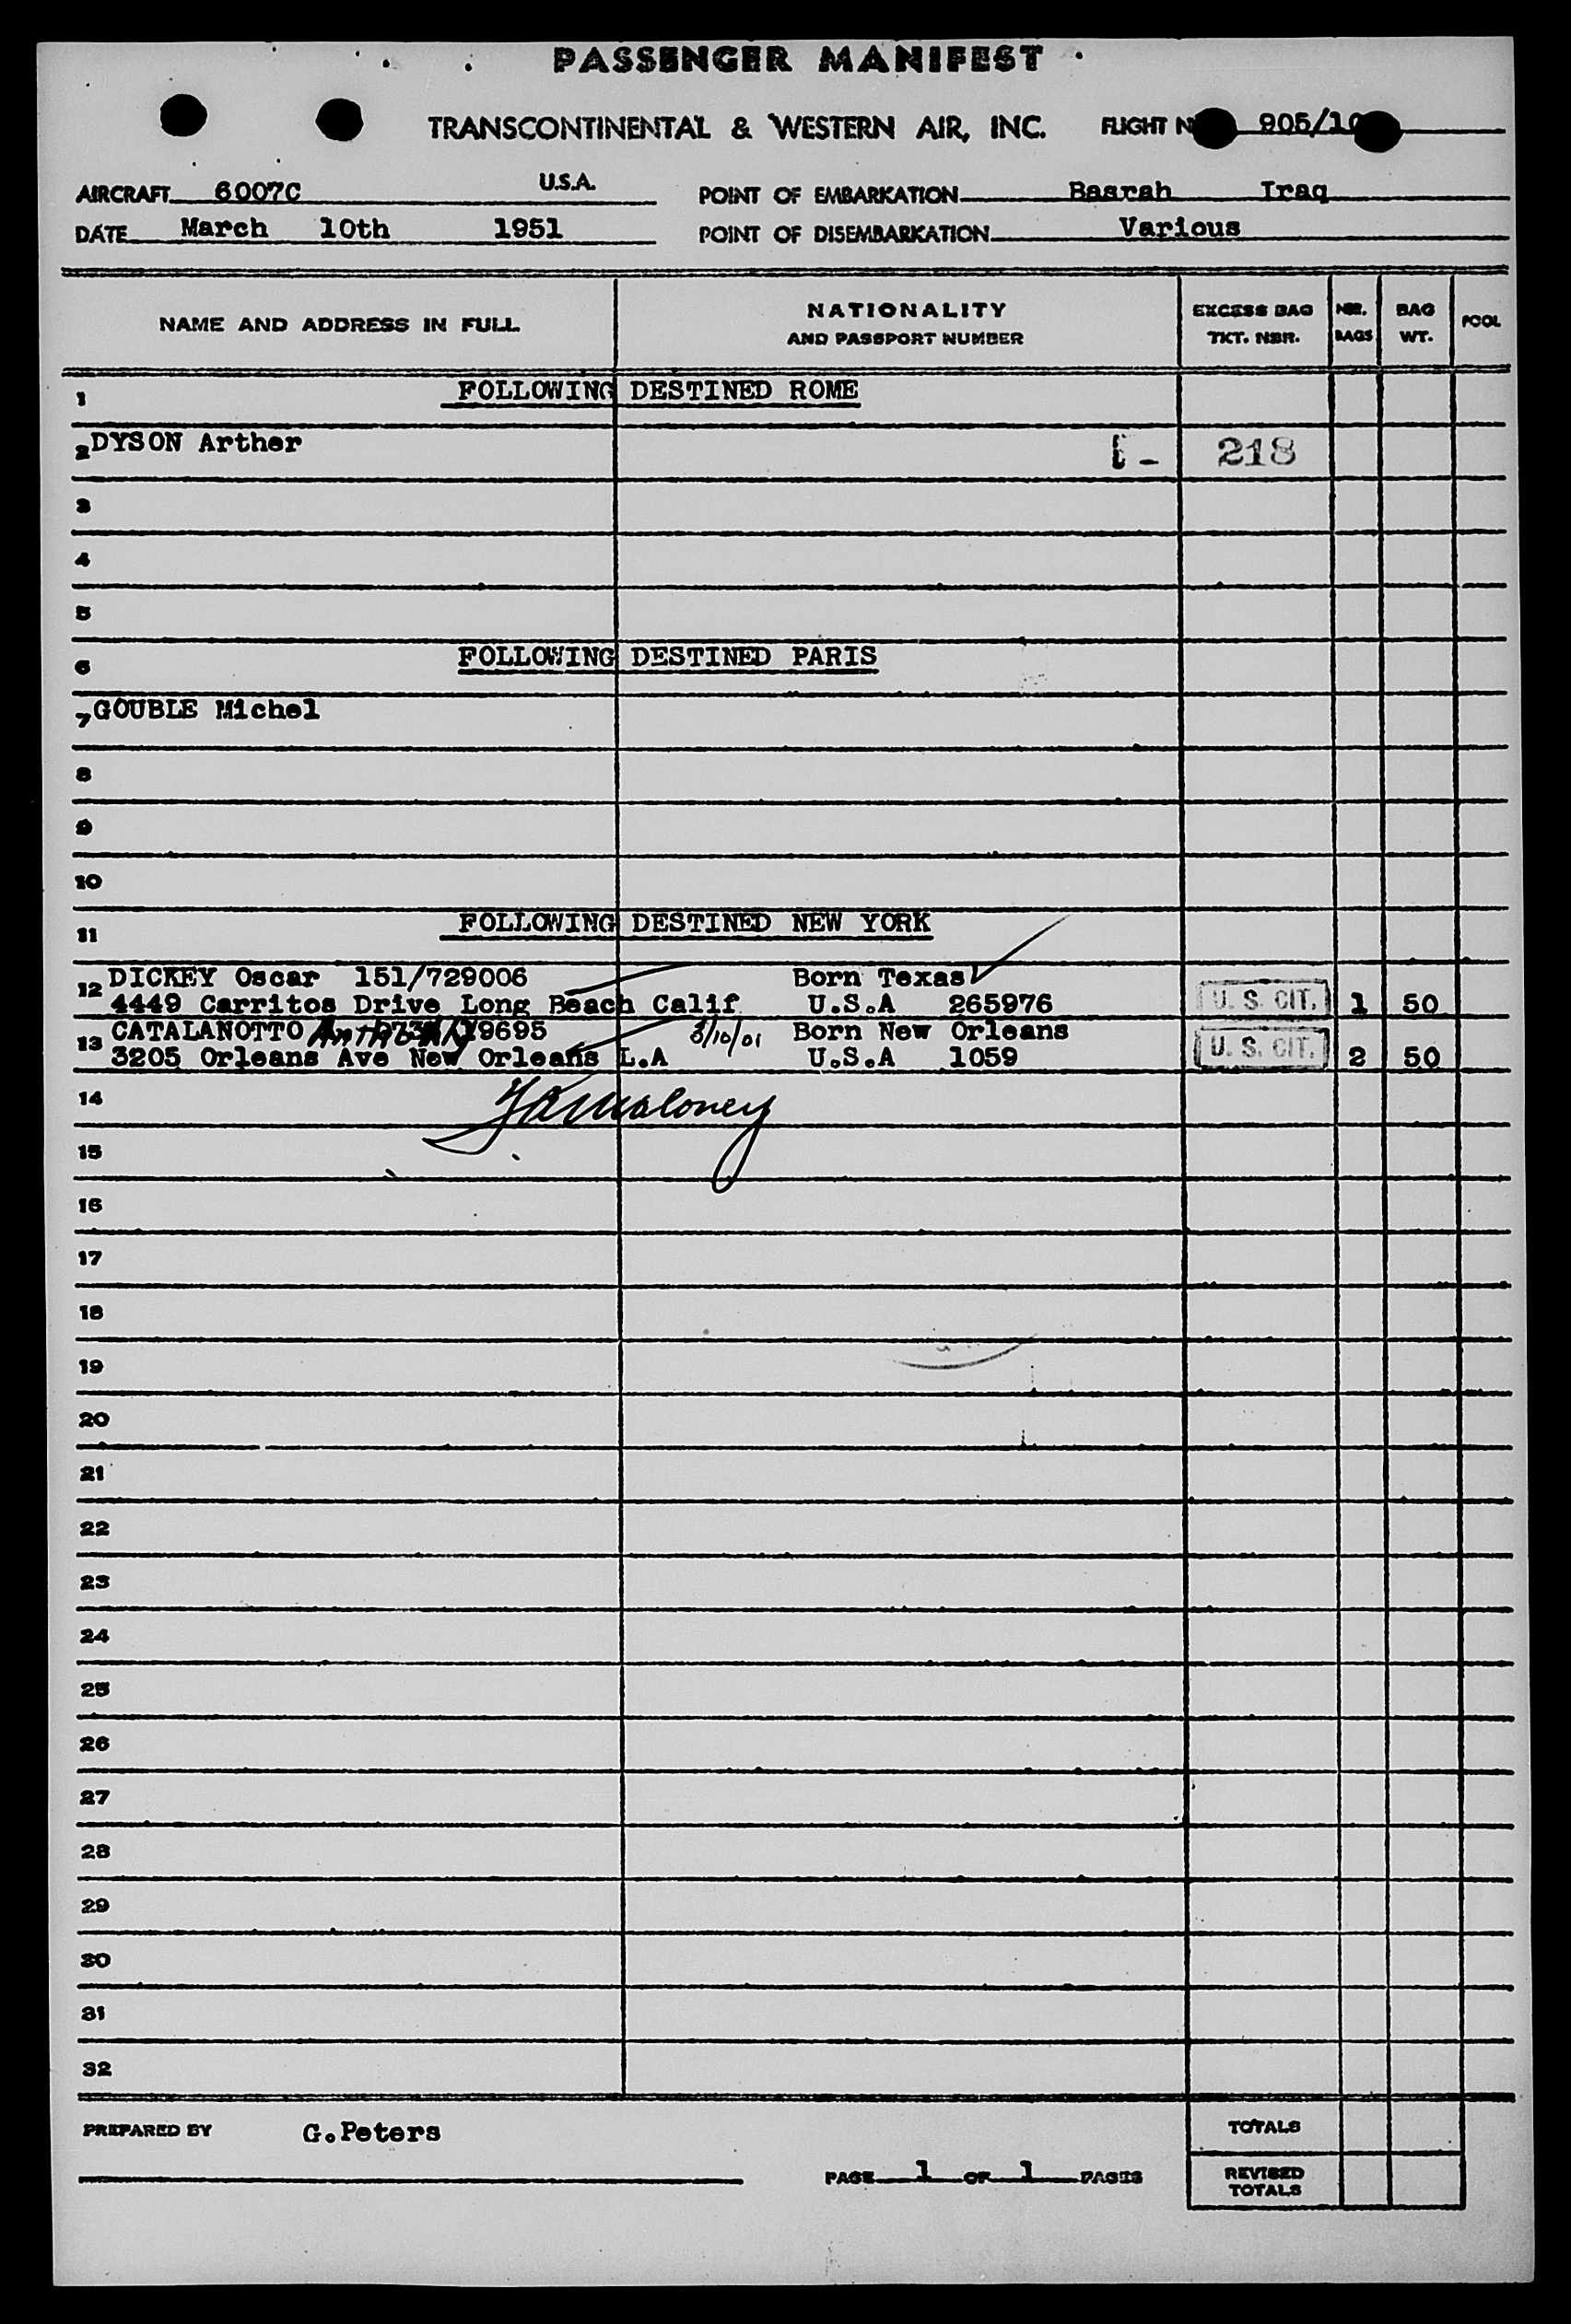 PASSENGER MANIFEST
TRANSCONTINENTAL & WESTERN AIR, INC. FLIGHT N 905/10
AIRCRAFT 6007C U.S.A. POINT OF EMBARKATION Basrah Iraq
DATE March 10th 1951 POINT OF DISEMBARKATION Various
NAME AND ADDRESS IN FULL NATIONALITY AND PASSPORT NUMBER EXCESS BAG TKT. NBR. NBR. BAGS BAG WT. POOL
1 FOLLOWING DESTINED ROME
2 DYSON Arther 218
3
4
5
6 FOLLOWING DESTINED PARIS
7 GOUBLE Michel
8
9
10
11 FOLLOWING DESTINED NEW YORK
12 DICKEY Oscar 151/729006 Born Texas
4449 Carritos Drive Long Beach Calif U.S.A 265976 U. S. CIT. 1 50
13 CATALANOTTO Anthony 9695 3/10/01 Born New Orleans
3205 Orleans Ave New Orleans L.A U.S.A 1059 U. S. CIT. 2 50
14 Maloney
15
16
17
18
19
20
21
22
23
24
25
26
27
28
29
30
31
32
PREPARED BY G.Peters TOTALS
PAGE 1 OF 1 PAGES REVISED TOTALS